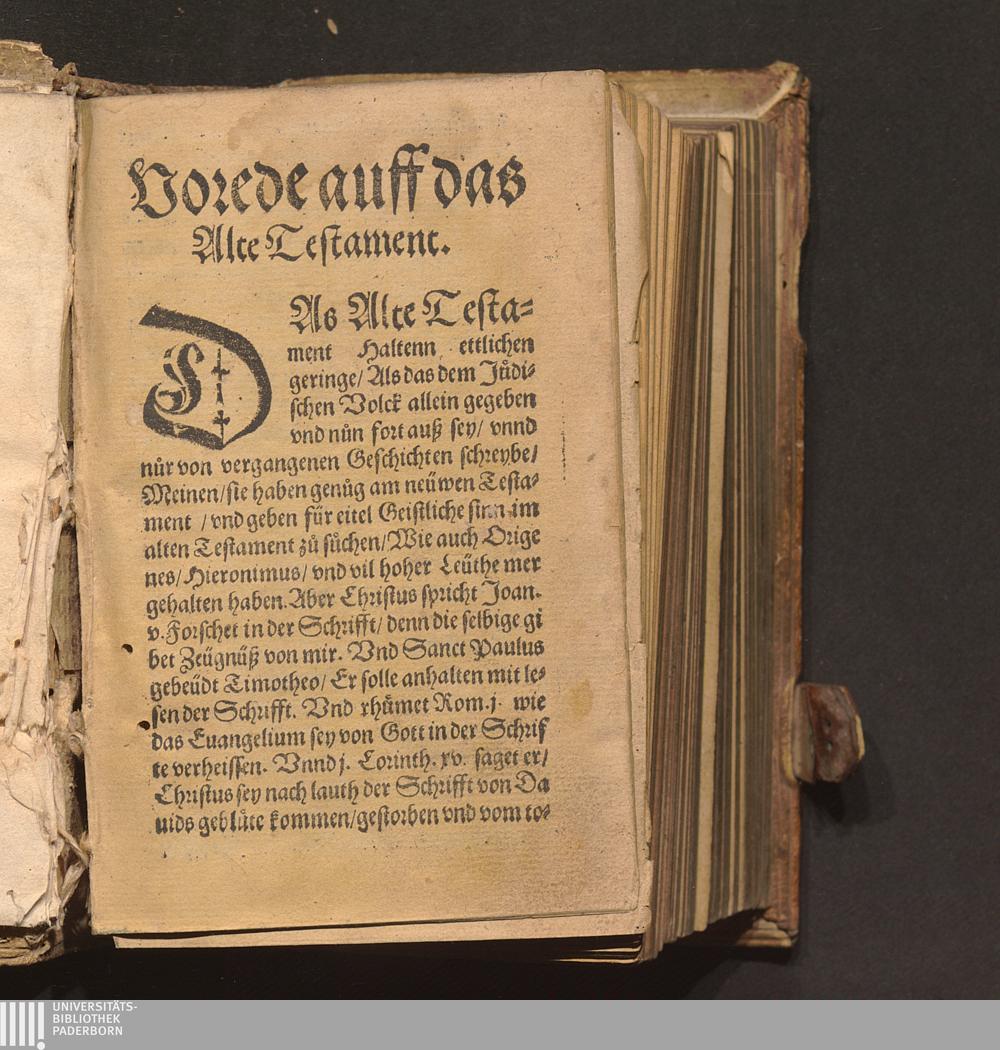 Vorede auff das
Alte Testament.
DAs Alte Testa⸗
ment Haltenn ettlichen
geringe/ Als das dem Jůdi⸗
schen Volck allein gegeben
vnd nůn fort auß sey/ vnnd
nůr von vergangenen Geschichten schreybe/
Meinen/sie haben genůg am neüwen Testa⸗
ment /vnd geben für eitel Geistliche sinn im
alten Testament zů sůchen/Wie auch Orige
nes/Hieronimus/ vnd vil hoher Leüthe mer
gehalten haben. Aber Christus spricht Joan.
v. Forschet in der Schrifft/ denn die selbige gi
bet Zeügnüß von mir. Vnd Sanct Paulus
gebeüdt Timotheo/ Er solle anhalten mit le⸗
sen der Schrifft. Vnd rhůmet Rom.j. wie
das Euangelium sey von Gott in der Schrif
te verheissen. Vnnd j. Corinth. xv. saget er/
Christus sey nach lauth der Schrifft von Da
uids geblůte kommen/gestorben vnd vom to⸗
UNIVERSITÄTS-
BIBLIOTHEK
PADERBORN